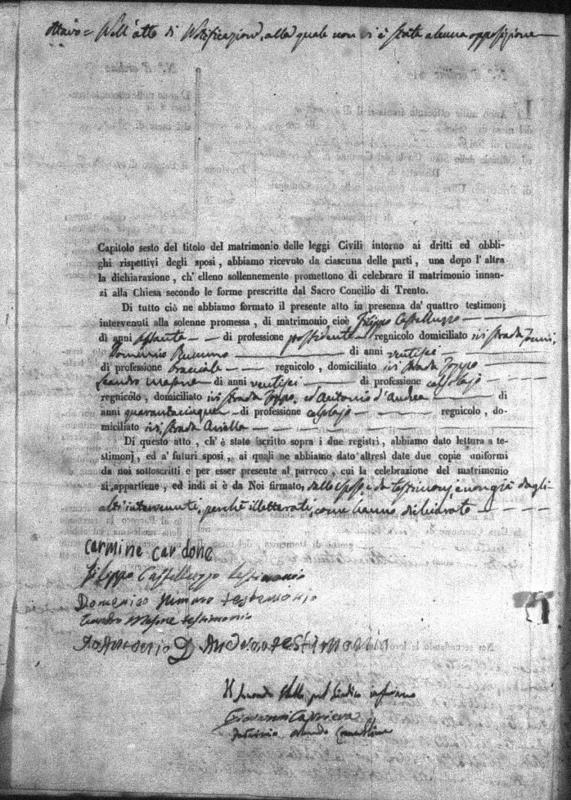 ottavo = Nell'atto di Notificazione, alla quale non vi è stata alcuna opposizione
Capitolo sesto del titolo del matrimonio delle leggi Civili intorno ai dritti ed obbli-
ghi rispettivi degli sposi, abbiamo ricevuto da ciascuna delle parti, una dopo l'altra
la dichiarazione, ch'elleno sollennemente promettono di celebrare il matrimonio innan-
zi alla Chiesa secondo le forme prescritte dal Sacro Concilio di Trento.
Di tutto ciò ne abbiamo formato il presente atto in presenza da' quattro testimonj
intervenuti alla solenne promessa, di matrimonio cioè Filippo Castelluzzo
di anni di professione possidente regnicolo domiciliato ivi strada
Domenico di anni ventisei
di professione bracciale regnicolo, domiciliato ivi strada Toppo
Leandro di anni ventisei di professione calzolajo
regnicolo, domiciliato ivi strada Toppo, ed Antonio d'Andrea di
anni quarantacinque di professione calzolajo regnicolo, do-
miciliato ivi strada
Di questo atto, ch'è stato iscritto sopra i due registri, abbiamo dato lettura a te-
stimonj, ed a' futuri sposi, ai quali ne abbiamo date altresì date due copie uniformi
da noi sottoscritti e per esser presente al parroco, cui la celebrazione del matrimonio
si appartiene, ed indi si è da Noi firmato, dallo sposo e da testimonj, e non già dagli
altri intervenuti, perchè illetterati, come hanno dichiarato
carmine cardone
Filippo Castelluzzo testimonio
Domenico testemonio
Leandro testimonio
Antonio D Andrea testimonio
Il secondo Eletto
Giovanni